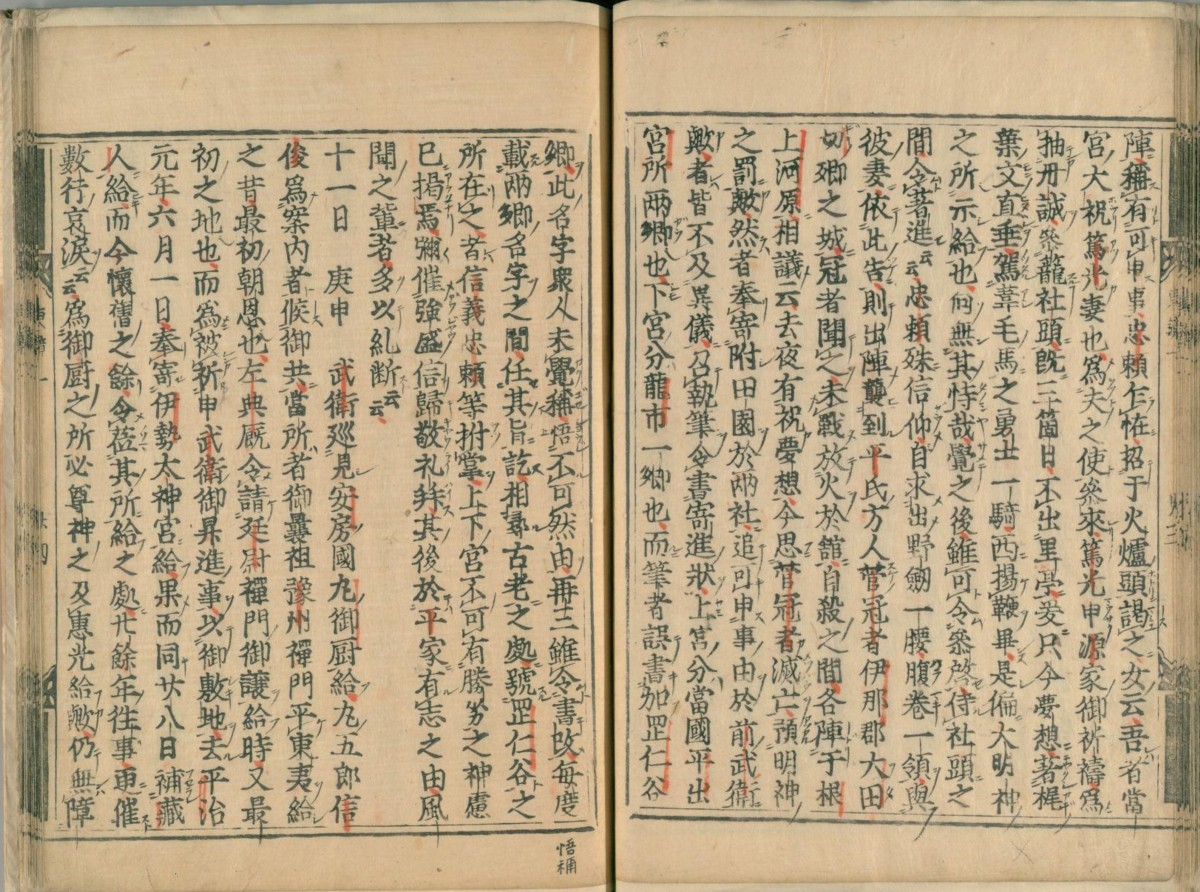 陣、稱有可申事、忠頼乍恠、招于火爐頭謁之、女云、吾者當
宮大祝篤光妻也、爲夫之使參來、篤光申源家御祈禱、爲
抽丹誠、參籠社頭、既三箇日、不出里亭、爰只今夢想、著梶
葉文直垂、駕葦毛馬之勇士一騎、西揚鞭畢、是偏大明神
之所示給也、何無其恃哉、覺之後、雖可令參啓、侍社頭之
間、令著進云云、忠頼殊信仰、自求出野釼一腰、腹卷一領、與
彼妻、依此告、則出陣、襲到平氏方人菅冠者伊那郡大田
切郷之城、冠者聞之、未戰放火於舘自殺之間、各陣于根
上河原、相議云、去夜有祝夢想、今思菅冠者滅亡、預明神
之罰歟、然者奉寄附田園於兩社、追可申事由於前武衛
歟者、皆不及異儀、召執筆令書寄進狀、上宮分當國平出
宮所兩郷也、下宮分龍市一郷也、而筆者誤書加罡仁谷
郷、此名字衆人未覺、稱悟不可然由、再三雖令書改、每度
載兩郷名字之間、任其旨訖、相尋古老之處、號罡仁谷之
所在之、者信義忠頼等拊掌、上下宮不可有勝劣之神慮
已揭焉、彌催強盛信、歸敬礼拜、其後於平家有志之由風
聞之輩者、多以糺断云云、
十一日 庚申 武衛巡見安房國丸御厨給、丸五郎信
俊爲案内者候御共、當所者御曩祖豫州禪門平東夷給
之昔最初朝恩也、左典厩令請廷尉禪門御讓給時、又最
初之地也、而爲被祈申武衛御昇進事、以御敷地、去平治
元年六月一日、奉寄伊勢太神宮給、果而同廿八日補藏
人給、而今懷舊之餘、令莅其所給之處、廿餘年往事、更催
數行哀淚云云、爲御厨之所、必尊神之及惠光給歟、仍無障
悟補